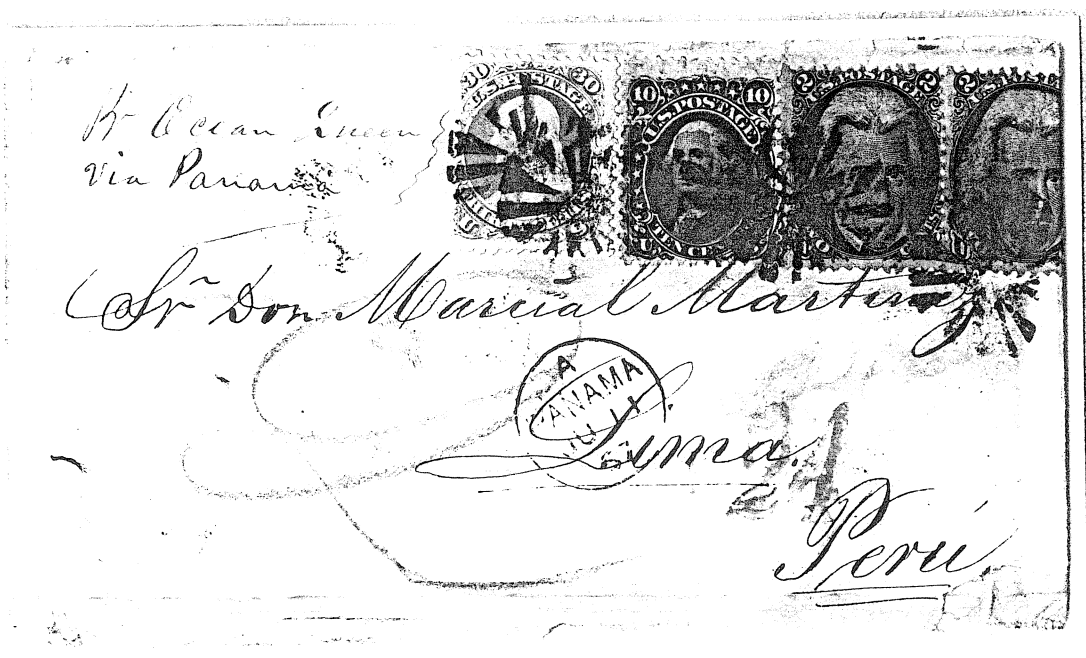 Pr Ocean Queen
via Panama
30 30
U.S. POSTAGE
10 10
U.S. POSTAGE
TEN CE
2 2
U.S. POSTAGE
2
Sr Don Marcial Martinez
A
PANAMA
JU 11
Lima.
24
Perú.